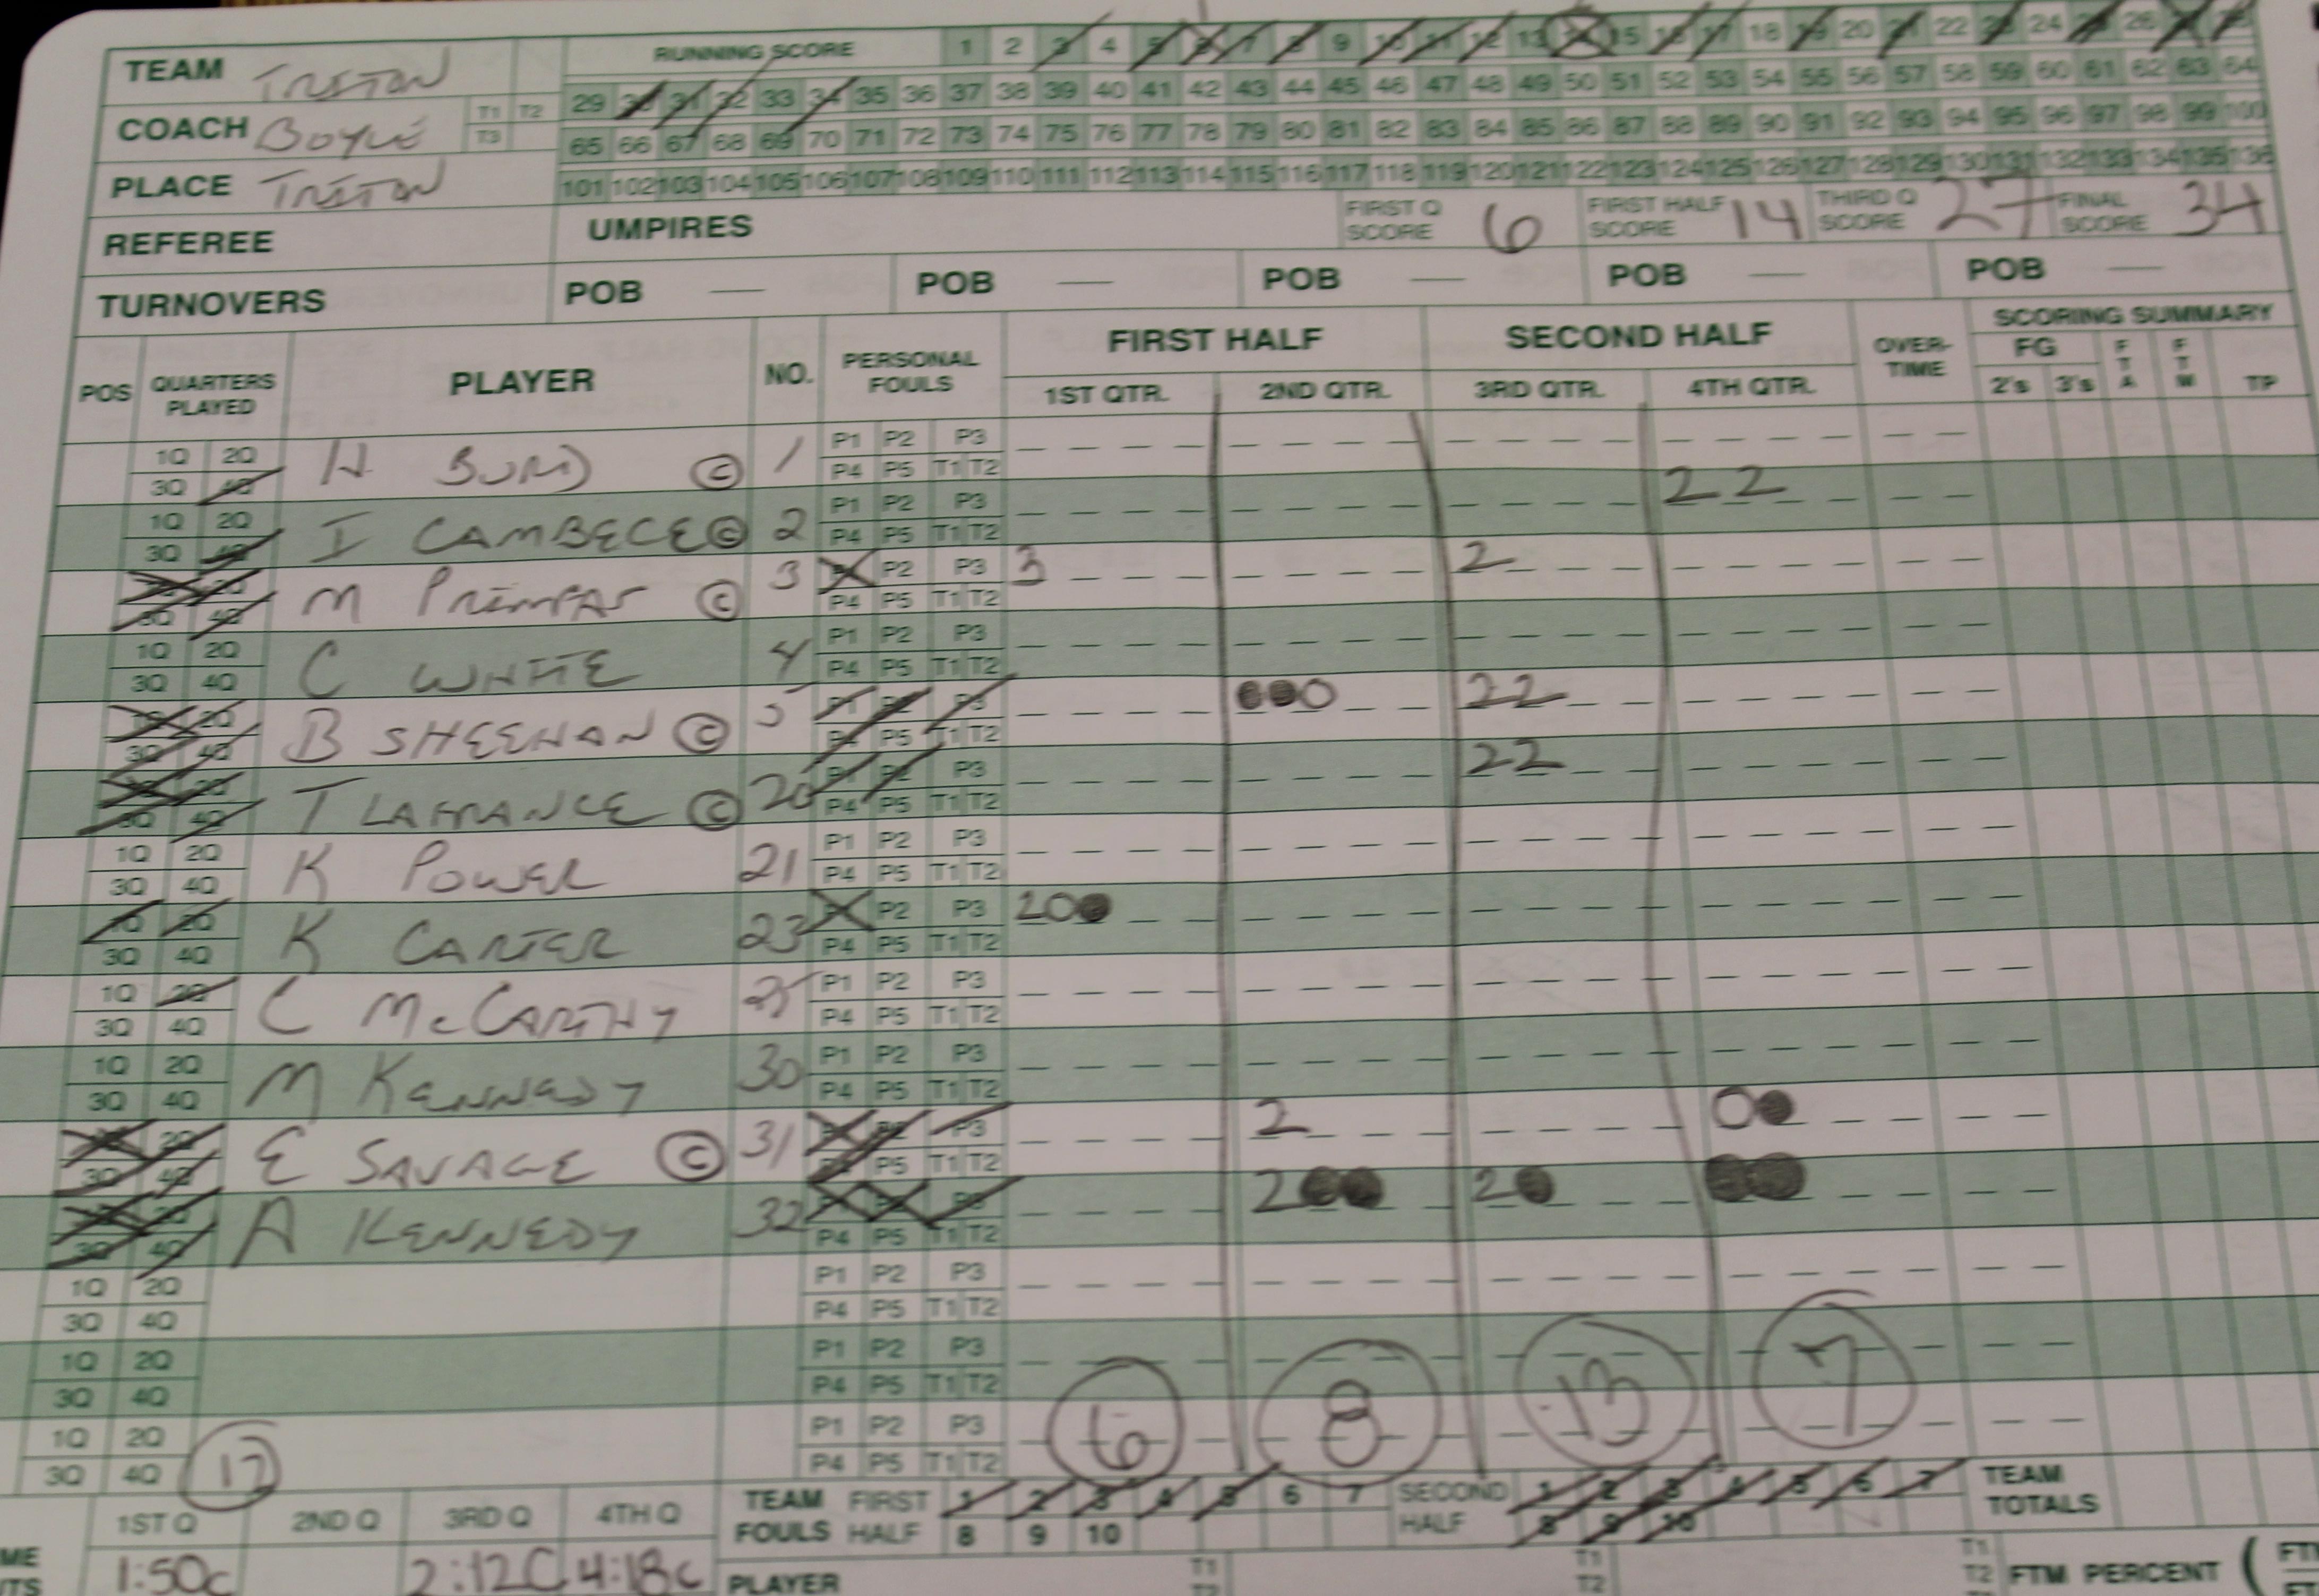 TEAM TRITON RUNNING SCORE 1 2 3 4 5 6 7 8 9 10 11 12 13 14 15 16 17 18 19 20 21 22 23 24 25 26 27 28
29 30 31 32 33 34 35 36 37 38 39 40 41 42 43 44 45 46 47 48 49 50 51 52 53 54 55 56 57 58 59 60 61 62 63 64
COACH BOYLE T1 T2 T3
65 66 67 68 69 70 71 72 73 74 75 76 77 78 79 80 81 82 83 84 85 86 87 88 89 90 91 92 93 94 95 96 97 98 99 100
PLACE TRITON
101 102 103 104 105 106 107 108 109 110 111 112 113 114 115 116 117 118 119 120 121 122 123 124 125 126 127 128 129 130 131 132 133 134 135 136
REFEREE UMPIRES FIRST Q SCORE 6 FIRST HALF SCORE 14 THIRD Q SCORE 27 FINAL SCORE 34
TURNOVERS POB — POB — POB — POB — POB —
POS QUARTERS PLAYED PLAYER NO. PERSONAL FOULS FIRST HALF SECOND HALF OVER-TIME SCORING SUMMARY
1ST QTR. 2ND QTR. 3RD QTR. 4TH QTR. FG 2's 3's FTA FTM TP
1Q 2Q P1 P2 P3
3Q 4Q H BURD © 1 P4 P5 T1 T2
1Q 2Q P1 P2 P3 2 2
3Q 4Q I CAMBECE © 2 P4 P5 T1 T2
1Q 2Q P1 P2 P3 3 2
3Q 4Q M © 3 P4 P5 T1 T2
1Q 2Q P1 P2 P3
3Q 4Q C WHITE 4 P4 P5 T1 T2
1Q 2Q P1 P2 P3 0 2 2
3Q 4Q B SHEEHAN © 5 P4 P5 T1 T2
1Q 2Q P1 P2 P3 2 2
3Q 4Q T LAFRANCE © 20 P4 P5 T1 T2
1Q 2Q P1 P2 P3
3Q 4Q K POWER 21 P4 P5 T1 T2
1Q 2Q P1 P2 P3 2 0
3Q 4Q K CARTER 23 P4 P5 T1 T2
1Q 2Q P1 P2 P3
3Q 4Q C McCARTHY 25 P4 P5 T1 T2
1Q 2Q P1 P2 P3
3Q 4Q M KENNEDY 30 P4 P5 T1 T2
1Q 2Q P1 P2 P3 2 0
3Q 4Q E SAVAGE © 31 P4 P5 T1 T2
1Q 2Q P1 P2 P3 2 2
3Q 4Q A KENNEDY 32 P4 P5 T1 T2
1Q 2Q P1 P2 P3
3Q 4Q P4 P5 T1 T2
1Q 2Q P1 P2 P3
3Q 4Q P4 P5 T1 T2
1Q 2Q P1 P2 P3 6 8 13 7
3Q 4Q P4 P5 T1 T2
1ST Q 2ND Q 3RD Q 4TH Q TEAM FOULS FIRST HALF 1 2 3 4 5 6 7 8 9 10 SECOND HALF 1 2 3 4 5 6 7 8 9 10 TEAM TOTALS
1:50c 2:12C 4:18c PLAYER T1 T2 T1 T2 T1 T2 FTM PERCENT